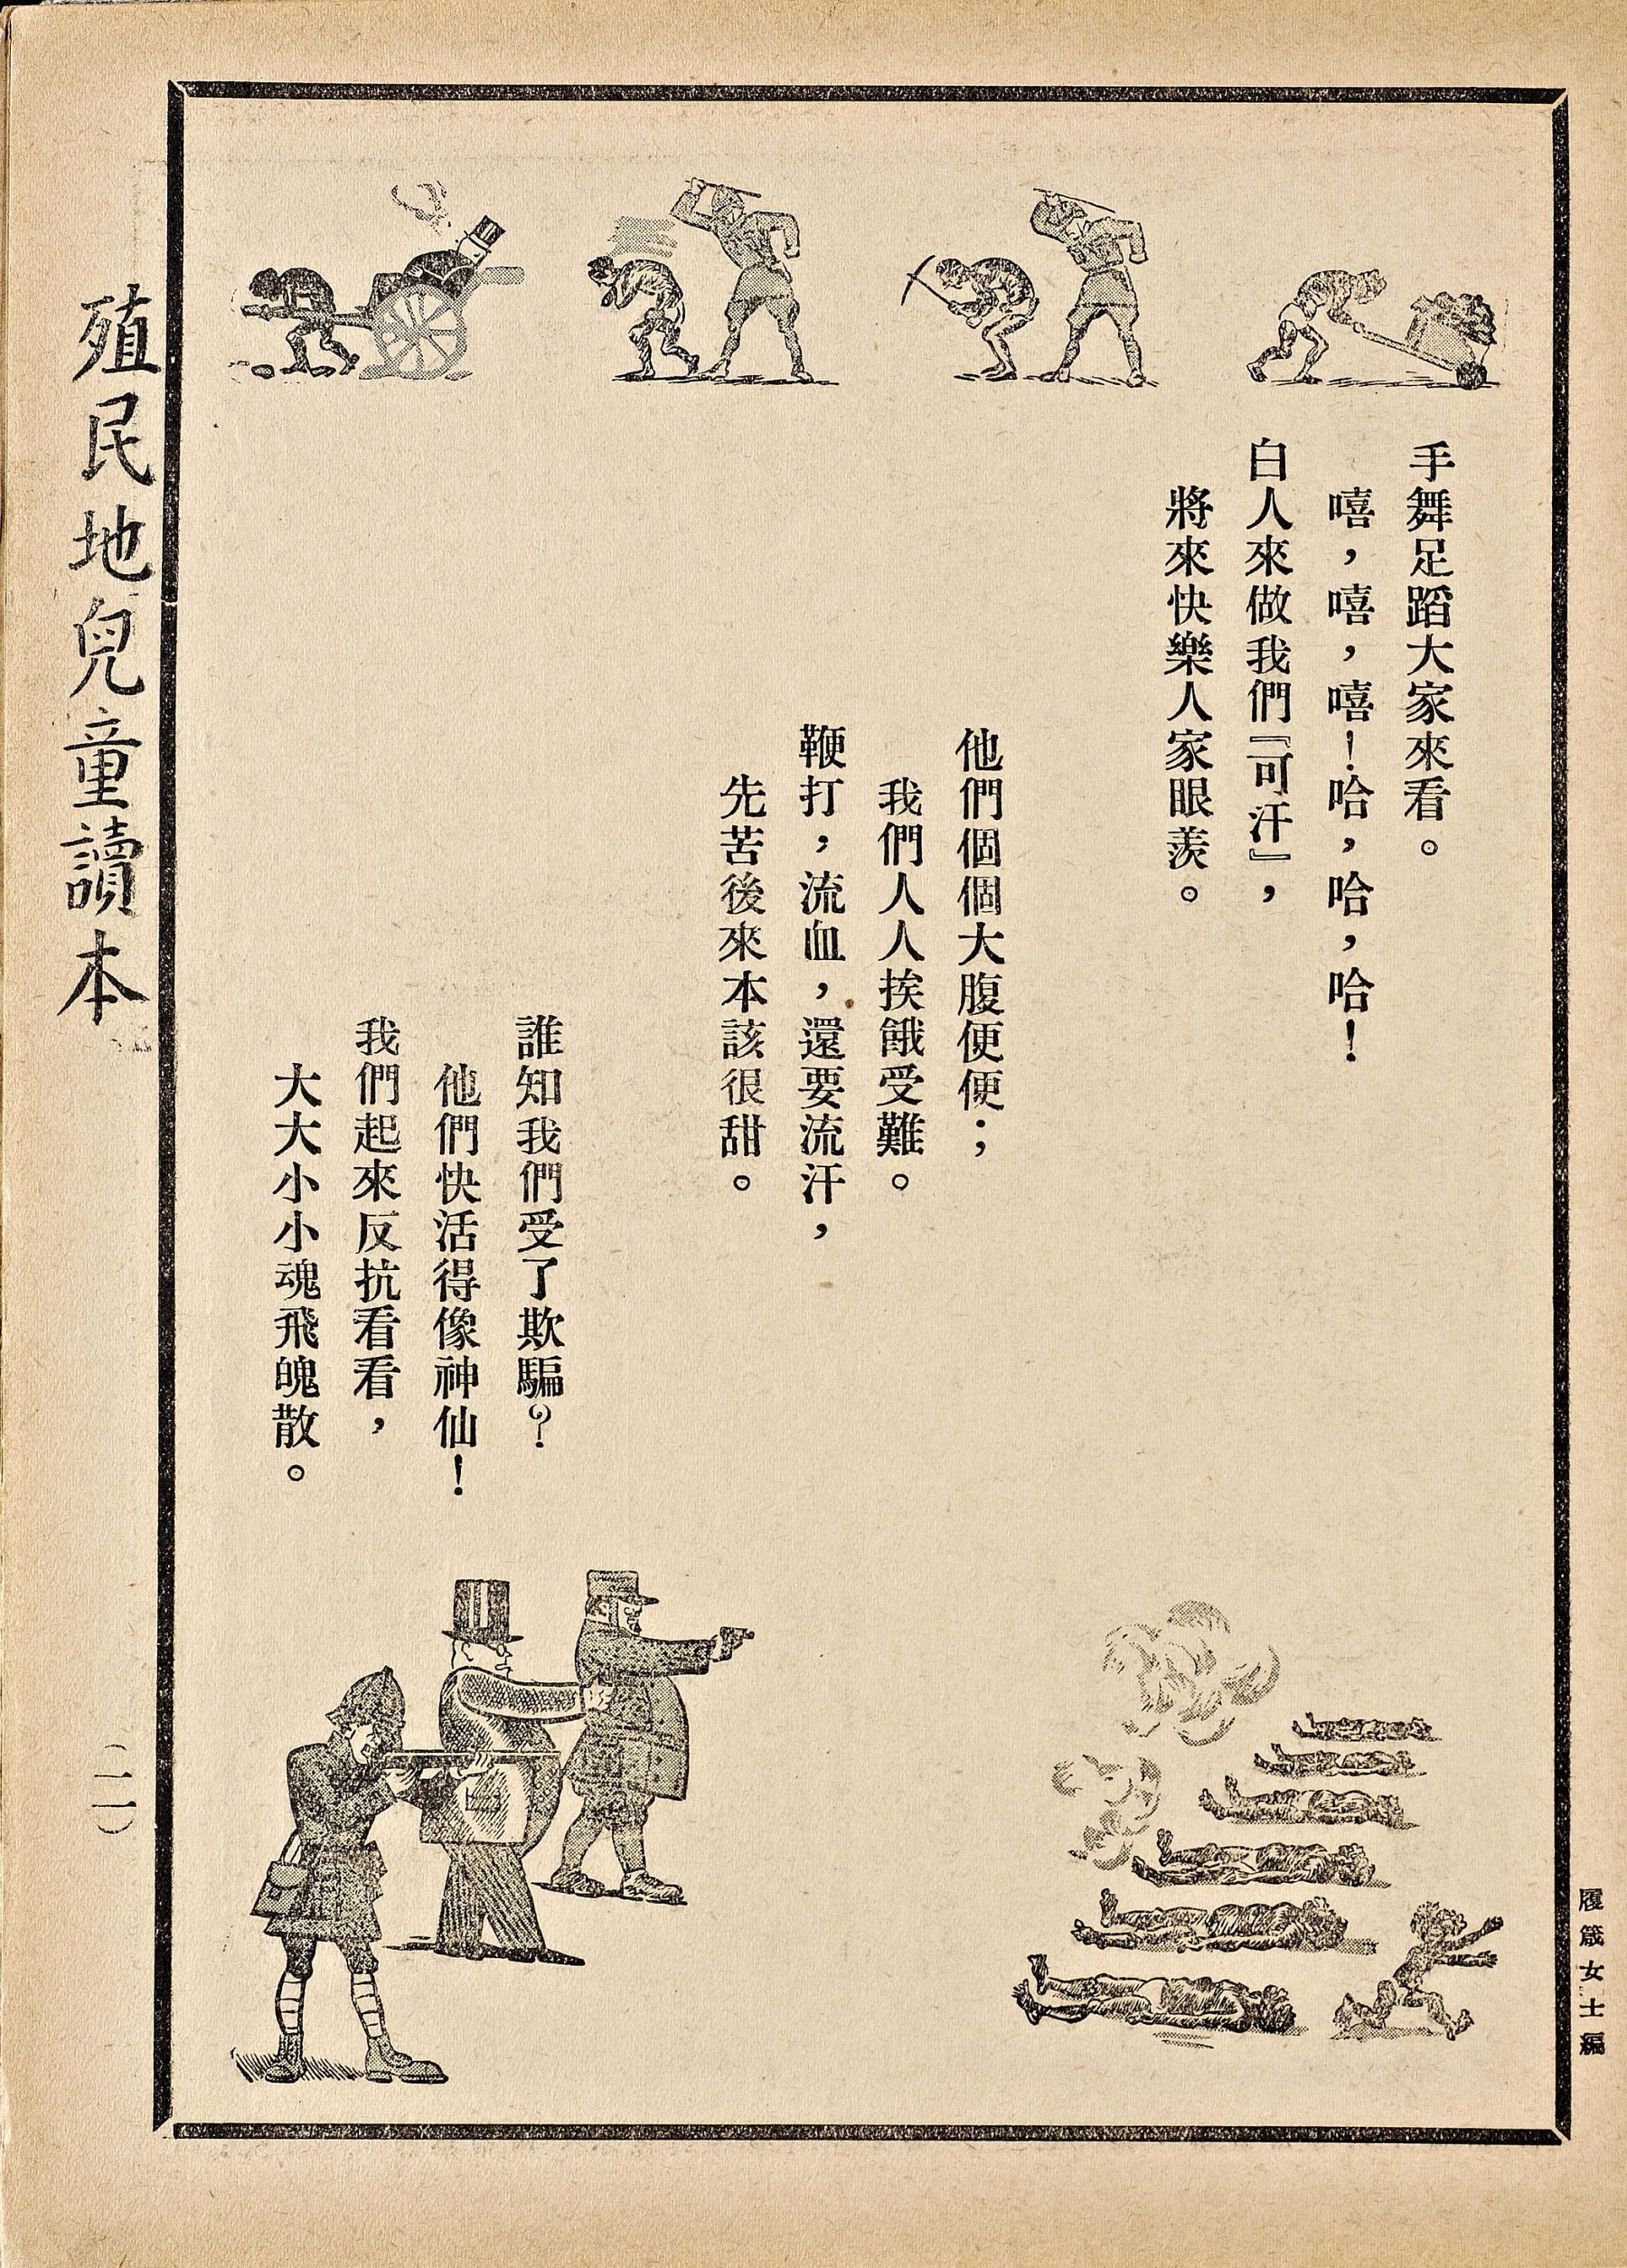 履箴女士編
手舞足蹈大家來看。
嘻，嘻，嘻！哈，哈，哈！
白人來做我們『可汗』，
將來快樂人家眼羨。
他們個個大腹便便；
我們人人挨餓受難。
鞭打，流血，還要流汗，
先苦後來本該很甜。
誰知我們受了欺騙？
他們快活得像神仙！
我們起來反抗看看，
大大小小魂飛魄散。
殖民地兒童讀本
（二一）